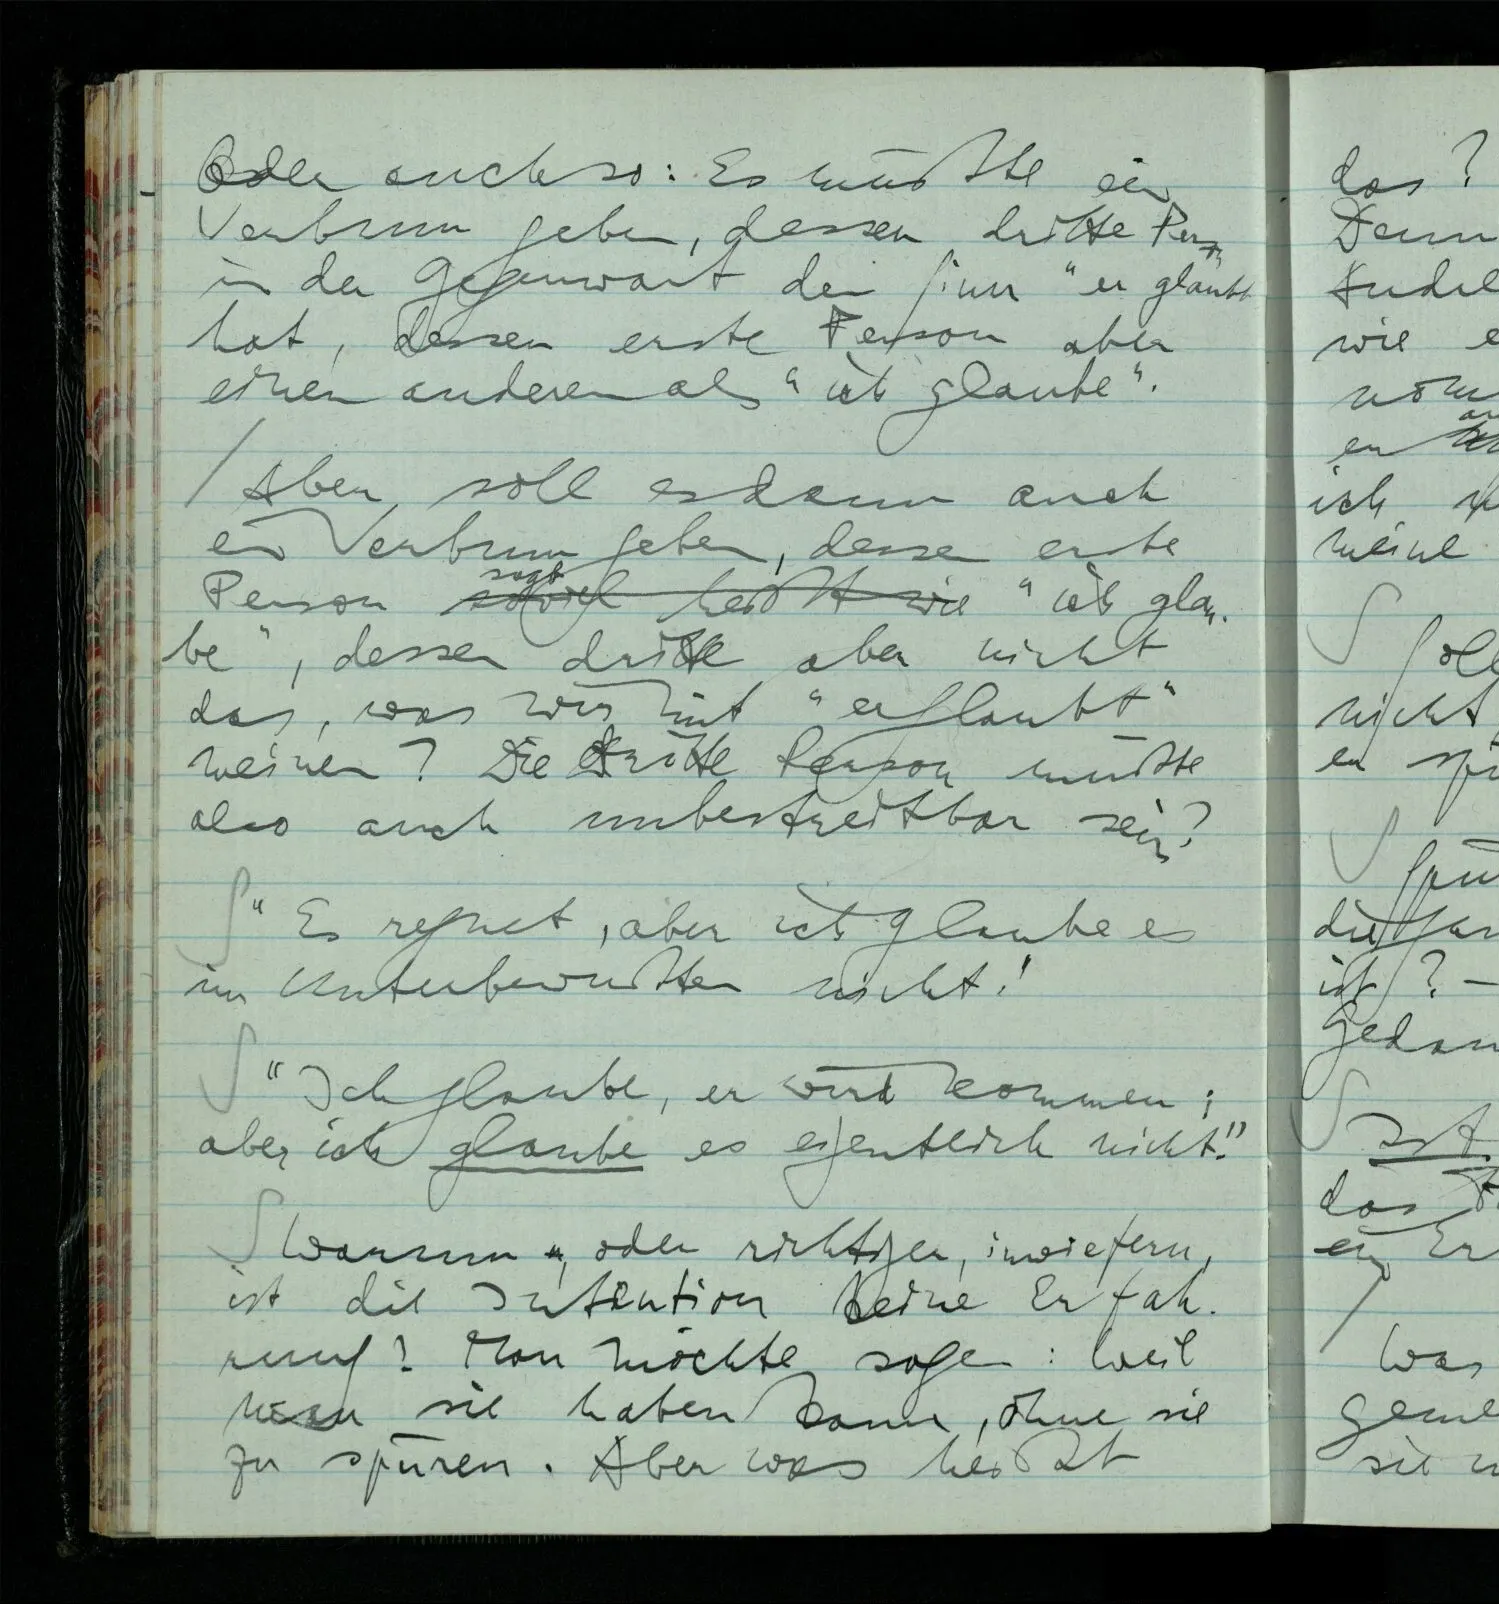 Oder auch so: Es müßte ein
Verbum geben, dessen dritte Person
in der Gegenwart den Sinn "er glaubt
hat, dessen erste Person aber
einen anderen als "ich glaube".
/ Aber soll es dann auch
ein Verbum geben, dessen erste
sagt
Person soviel heißt wie "ich glau-
be", dessen dritte aber nicht
das, was wir mit "er glaubt"
meinen? Die dritte Person müßte
also auch unbestreitbar sein?
∫ "Es regnet, aber ich glaube es
im Unterbewußten nicht!
∫ "Ich glaube, er wird kommen;
aber ich glaube es eigentlich nicht."
∫ Warum, oder richtiger, inwiefern,
ist die Intention keine Erfah-
rung? Man möchte sagen: Weil
man sie haben kann, ohne sie
zu spüren. Aber was heißt
das?
Denn
wie e
er
ich
meine
∫
nicht
er spü
∫ Spü
ist? –
Gedan
∫ Ist
das
ein Er
/
Was
geme
sie